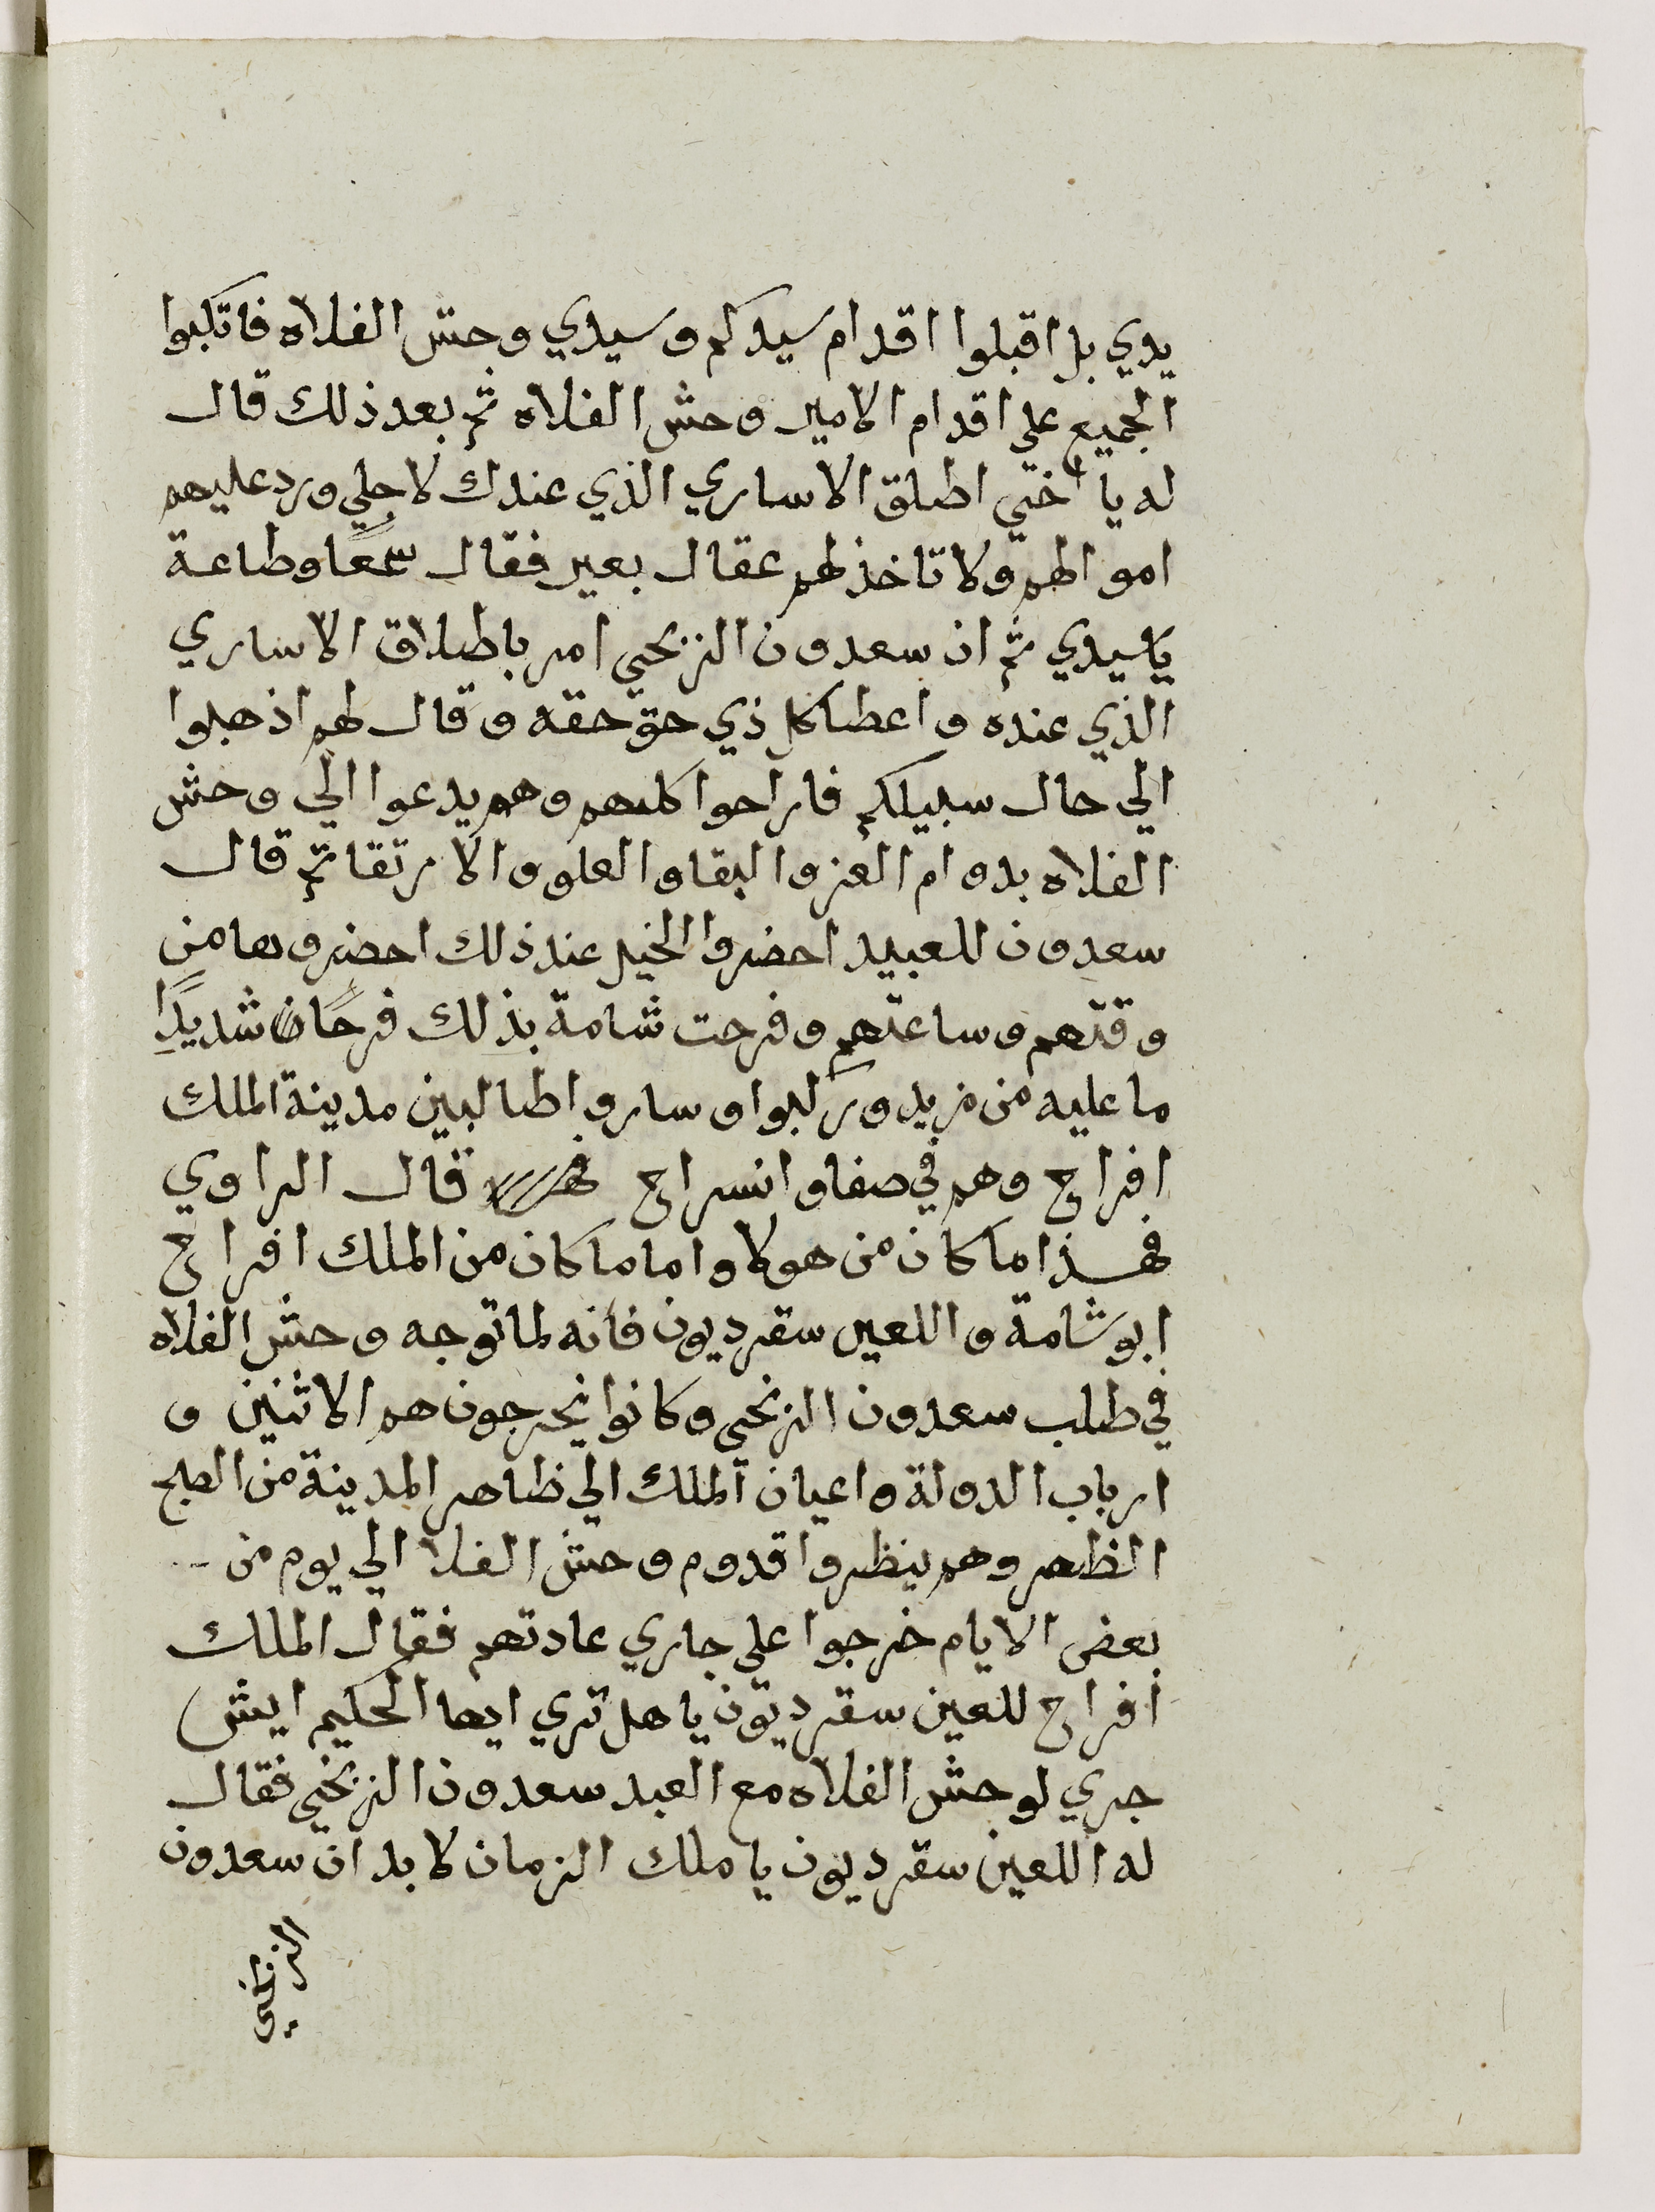 يدي بل اقبلوا اقدام سيدكم وسيدي وحش الفلاه فاتكبوا
الجميع علي اقدام الامير وحش الفلاه ثم بعد ذلك قال
له يا اختي اطلق الاساري الذي عندك لاجلي ورد عليهم
اموالهم ولا تاخذ لهم عقال بعير فقال سمعًا وطاعة
يا سيدي ثم ان سعدون الزنجي امر باطلاق الاساري
الذي عنده واعطا كل ذي حق حقه وقال لهم اذهبوا
الي حال سبيلكم فاراحوا كلهم وهم يدعوا الي وحش
الفلاه بدوام العز والبقا والعلو والارتقا ثم قال
سعدون للعبيد احضروا الخيل عند ذلك احضروها من
وقتهم وساعتهم وفرحت شامة بذلك فرحًا شديدًا
ما عليه من مزيد وركبوا وساروا طالبين مدينة الملك
افراح وهم في صفا وانسراح قال الراوي
فهذا ما كان من هولا واما ما كان من الملك افراح
ابو شامة واللعين سقرديون فانه لما توجه وحش الفلاه
في طلب سعدون الزنجي وكانوا يخرجون هم الاثنين و
ارباب الدولة واعيان الملك الي ظاهر المدينة من الصبح
الظهر وهم ينظروا قدوم وحش الفلا الي يوم من
بعض الايام خرجوا علي جاري عادتهم فقال الملك
افراح للعين سقرديون يا هل تري ايها الحكيم ايش
جري لوحش الفلاه مع العبد سعدون الزنجي فقال
له اللعين سقرديون يا ملك الزمان لا بد ان سعدون
الزنجي